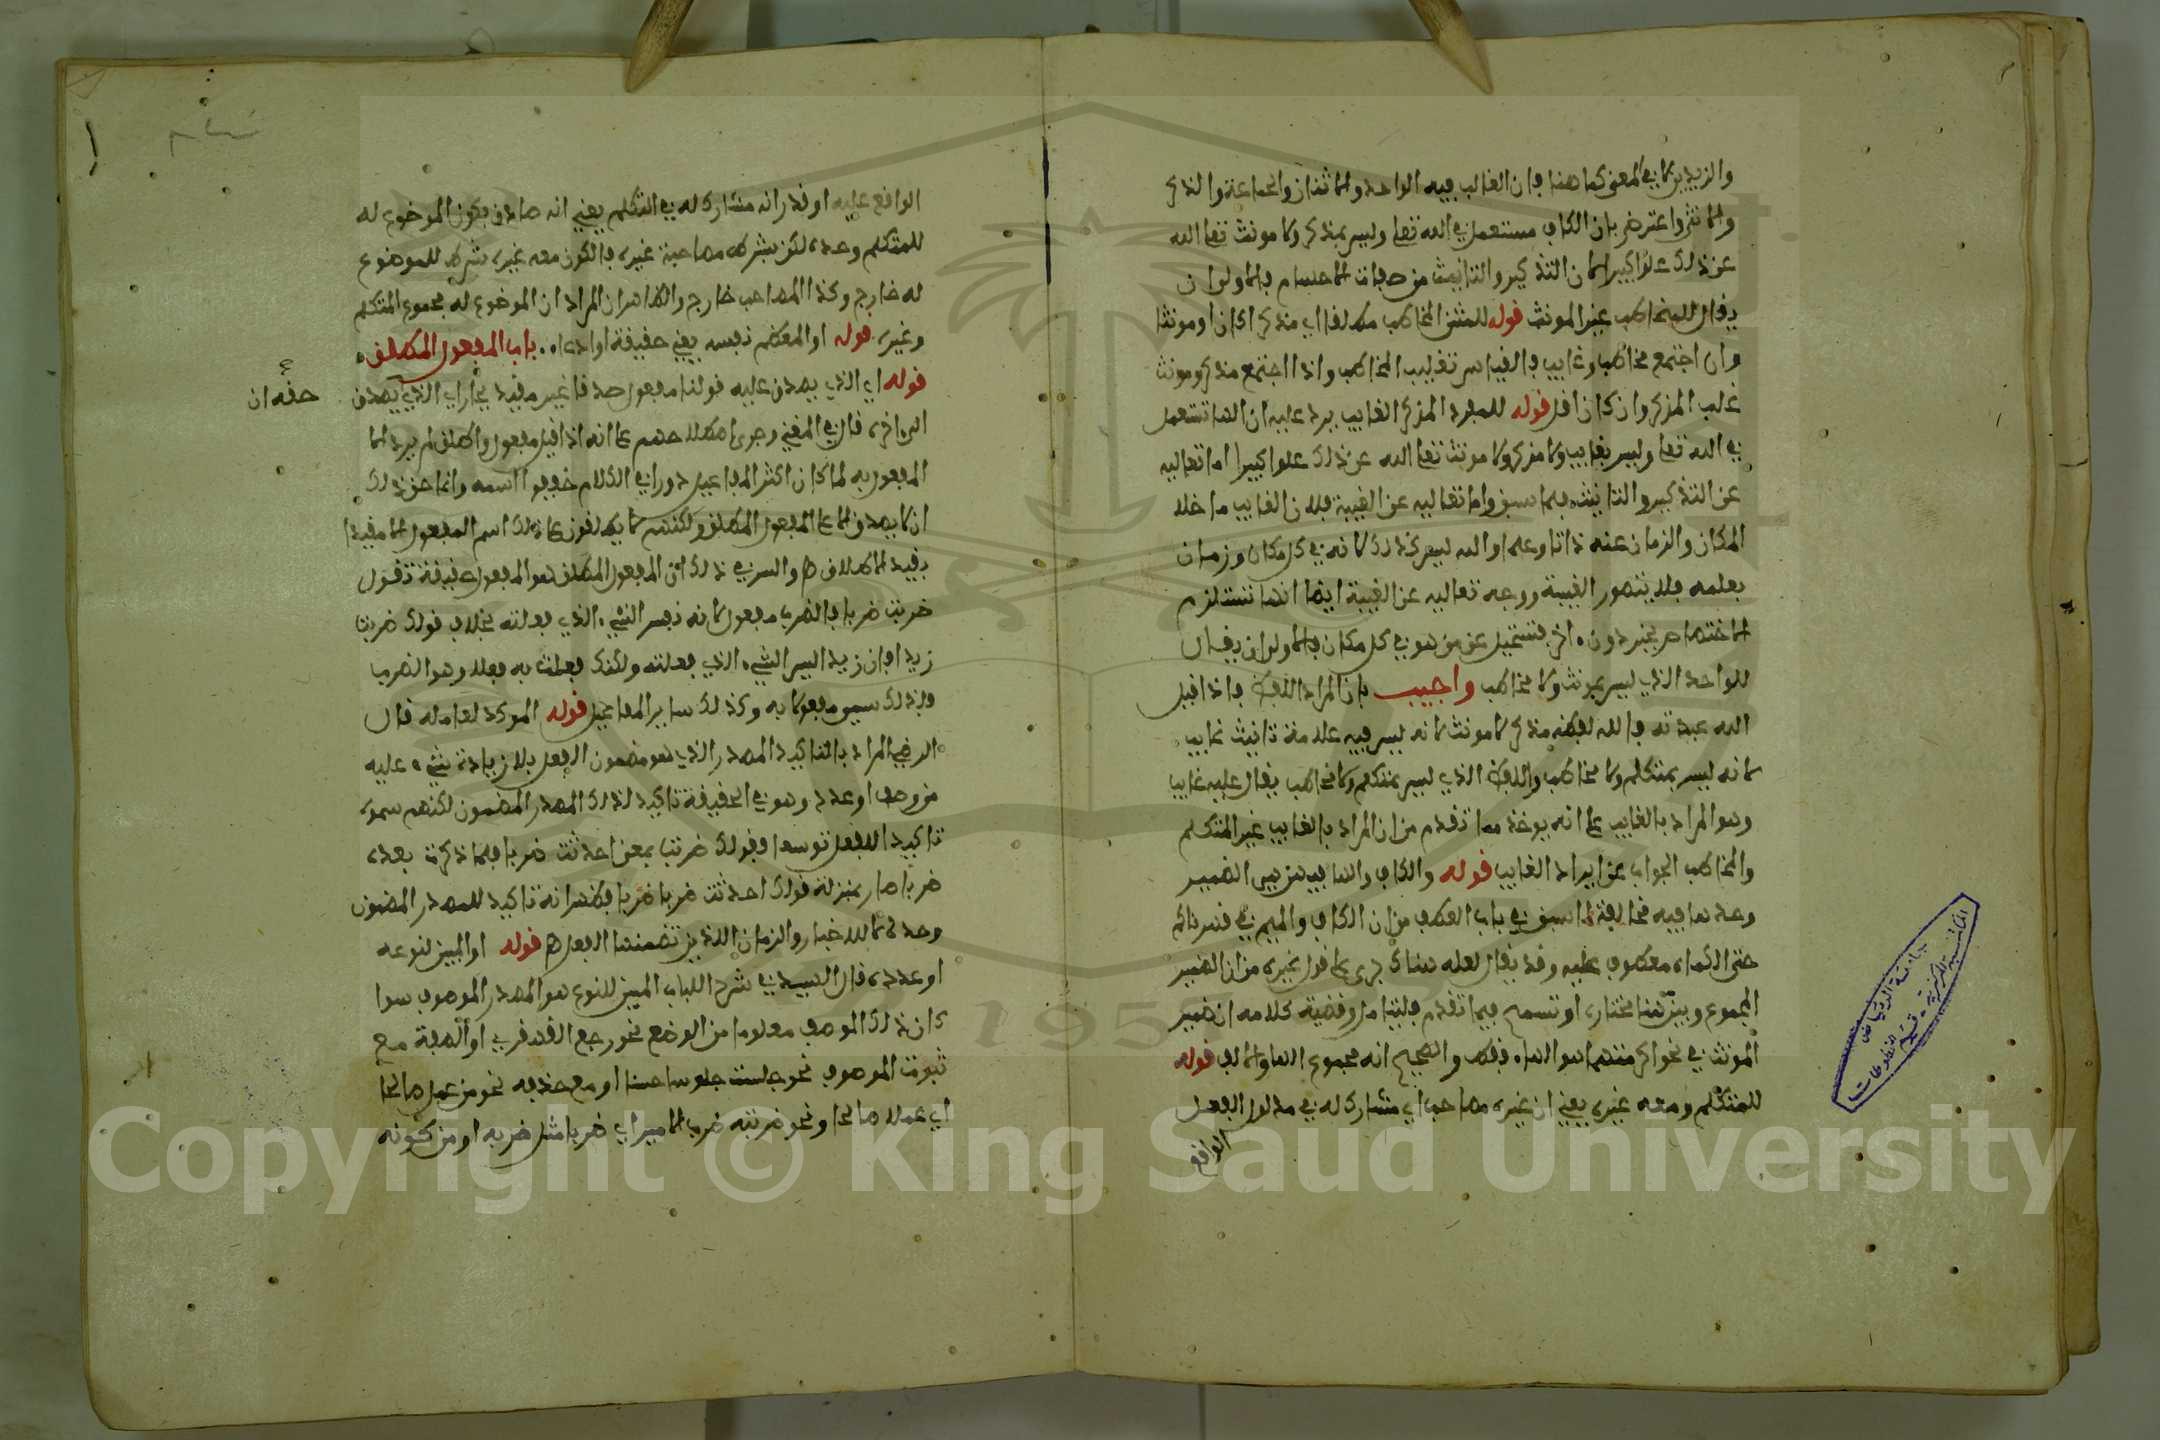 والزيدين لا في المعنى كما هنا فان الغايب فيه الواحد والاثنان والجماعة والذكر
والانثى واعترض بان الكاف مستعمل في الله تعالى وليس بمذكر ولا مونث تعالى الله
عن ذلك علوا كبيرا لان التذكير والتانيث من صفات الاجسام فالاولى ان
يقال للمخاطب غير المونث قوله للمثنى المخاطب مطلقا اي مذكرا كان او مونثا
وان اجتمع مخاطب وغايب فالقياس تغليب المخاطب واذا اجتمع مذكر ومونث
غلب المذكر وان كان اقل قوله للمفرد المذكر الغايب يرد عليه ان الها تستعمل
في الله تعالى وليس بغايب ولا مذكر ولا مونث تعالى الله عن ذلك علوا كبيرا اما تعاليه
عن التذكير والتانيث فلما سبق واما تعاليه عن الغيبة فلان الغايب ما خلا
المكان والزمان عنه ذاتا وعلما والله ليس كذلك لانه في كل مكان وزمان
بعلمه فلا يتصور الغيبة ووجه تعاليه عن الغيبة ايضا انها تستلزم
الاختصاص بحيز دون اخر فتستحيل عن من هو في كل مكان فالاولى ان يقال
للواحد الذي ليس بمونث ولا مخاطب واجيب بان المراد اللفظ فاذا قيل
الله عبدته فالله لفظه مذكر لا مونث لانه ليس فيه علامة تانيث غايب
لانه ليس بمتكلم ولا مخاطب واللفظ الذي ليس بمتكلم ولا مخاطب يقال عليه غايب
وهو المراد بالغايب على انه يوخذ مما تقدم من ان المراد بالغايب غير المتكلم
والمخاطب الجواب عن ايراد الغايب قوله والكاف والها فيهن هي الضمير
وحدها فيه مخالفة لما سبق في باب العطف من ان الكاف والميم في قدرناكم
حتى الكماة معطوف عليه وقد يقال لعله هناك جرى على قول غيره من ان الضمير
المجموع وبين هنا مختاره او تسمح فيما تقدم فليتامل وقضية كلامه ان ضمير
المونث في نحو اكرمتها هو الهاء فقط والصحيح انه مجموع الها والالف قوله
للمتكلم ومعه غيره يعني ان غيره مصاحب اي مشارك له في مدلول الفعل
الواقع
الواقع عليه او قدر انه مشارك له في التكلم يعني انه صادق بكون الموضوع له
للمتكلم وحده لكن بشرط مصاحبة غيره فالكون معه غيره شرط للموضوع
له خارج وكذا المصاحب خارج والظاهر ان المراد ان الموضوع له مجموع المتكلم
وغيره قوله او المعظم نفسه يعني حقيقة او ادعا. باب المفعول المطلق
قوله اي الذي يصدق عليه قولنا مفعول صدقا غير مقيد بجار اي الذي يصدق
حقه ان
الى اخره قال في المغني وجرى اصطلاحهم على انه اذا قيل مفعول واطلق لم يرد الا
المفعول به لما كان اكثر المفاعيل دورا في الكلام خففوا اسمه وانما حق ذلك
ان لا يصدق الا على المفعول المطلق ولكنهم لا يطلقون على ذلك اسم المفعول الا مقيدا
بقيد الاطلاق ه والسر في ذلك ان المفعول المطلق هو المفعول حقيقة تقول
ضربت ضربا فالضرب مفعول لانه نفس الشيء الذي فعلته بخلاف قولك ضربت
زيدا فان زيدا ليس الشيء الذي فعلته ولكنك فعلت به فعلا وهو الضرب
فلذلك سمي مفعولا به وكذلك ساير المفاعيل قوله الموكد لعامله قال
الرضي المراد بالتاكيد المصدر الذي هو مضمون الفعل بلا زيادة شيء عليه
من وصف او عدد وهو في الحقيقة تاكيد لذلك المصدر المضمون لكنهم سموه
تاكيدا للفعل توسعا فقولك ضربت بمعنى احدثت ضربا فلما ذكرت بعده
ضربا صار بمنزلة قولك احدثت ضربا ضربا فظهر انه تاكيد للمصدر المضمون
وحده لا للاخبار والزمان اللذين تضمنهما الفعل ه قوله او المبين لنوعه
او عدده قال السيد في شرح اللباب المبين للنوع هو المصدر الموصوف سوا
كان ذلك الموصف معلوما من الوضع نحو رجع القهقرى او الصفة مع
ثبوت الموصوف نحو جلست جلوسا حسنا او مع حذفه نحو من عمل صالحا
اي عملا صالحا ونحو ضربته ضرب الامير اي ضربا مثل ضربه او من كونه
جامعة الرياض
المكتبة المركزية - قسم المخطوطات
1957
Copyright © King Saud University